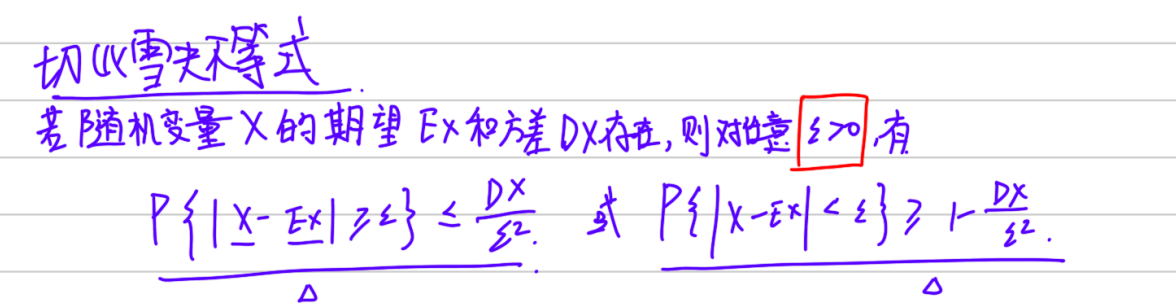 切比雪夫不等式.
若随机变量X的期望EX和方差DX存在,则对任意ε>0,有
P{|X-EX|≥ε}≤DX/ε². 或 P{|X-EX|<ε}≥1-DX/ε².
Δ Δ